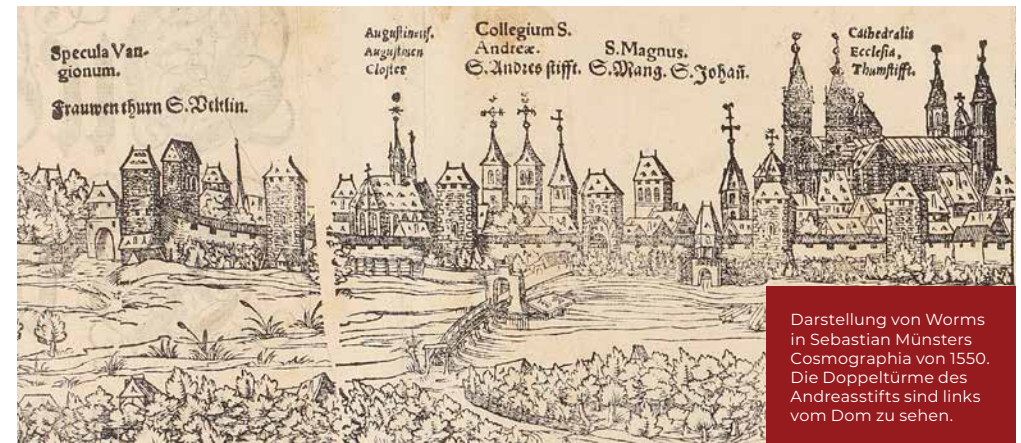 Specula Van-
gionum.
Frauwen thurn S. Veltlin.
Augustinens.
Augustinen
Closter
Collegium S.
Andreæ.
S. Andres stifft.
S. Magnus.
S. Mang. S. Johañ.
Cathedralis
Ecclesia,
Thumstifft.
Darstellung von Worms
in Sebastian Münsters
Cosmographia von 1550.
Die Doppeltürme des
Andreasstifts sind links
vom Dom zu sehen.